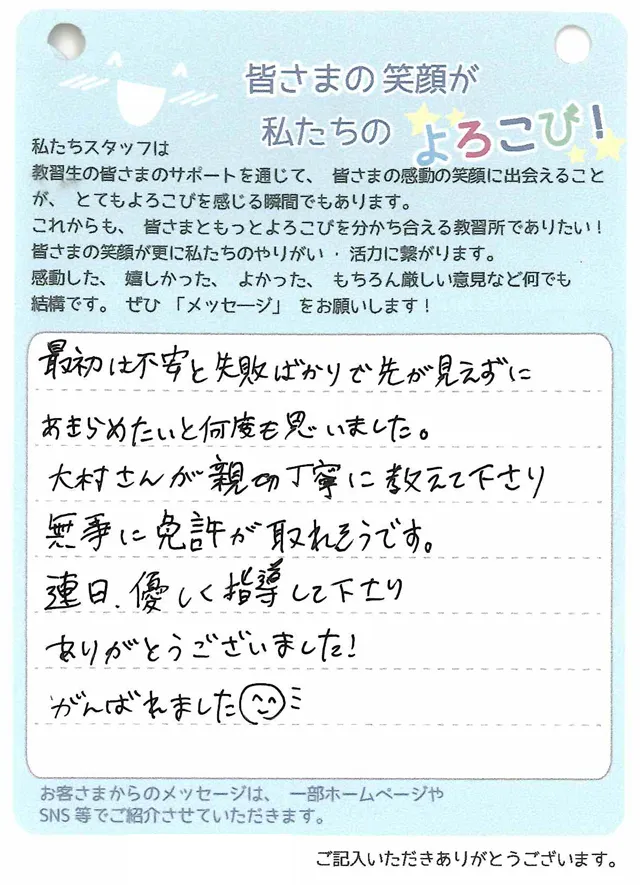 皆さまの笑顔が
私たちの よろこび！
私たちスタッフは
教習生の皆さまのサポートを通じて、 皆さまの感動の笑顔に出会えること
が、 とてもよろこびを感じる瞬間でもあります。
これからも、 皆さまともっとよろこびを分かち合える教習所でありたい！
皆さまの笑顔が更に私たちのやりがい ・ 活力に繋がります。
感動した、 嬉しかった、 よかった、 もちろん厳しい意見など何でも
結構です。 ぜひ 「メッセージ」 をお願いします！
最初は不安と失敗ばかりで先が見えずに
あきらめたいと何度も思いました。
大村さんが親切丁寧に教えて下さり
無事に免許が取れそうです。
連日、優しく指導して下さり
ありがとうございました！
がんばれました
お客さまからのメッセージは、 一部ホームページや
SNS 等でご紹介させていただきます。
ご記入いただきありがとうございます。